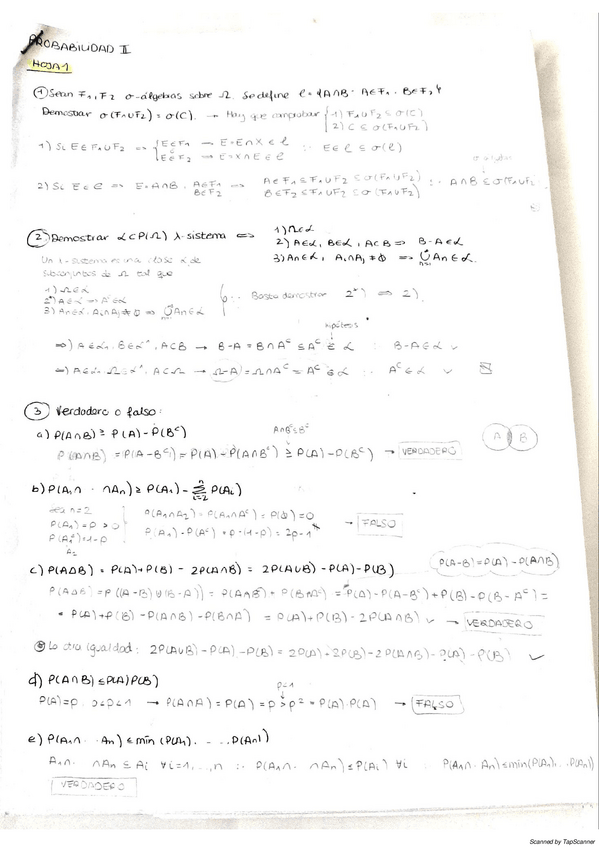 PROBABILIDAD II
HOJA 1
① Sean F₁, F₂ σ-álgebras sobre Ω. Se define C = {A∩B : A∈F₁, B∈F₂}
Demostrar σ(F₁∪F₂) = σ(C). → Hay que comprobar { 1) F₁∪F₂ ⊆ σ(C)
2) C ⊆ σ(F₁∪F₂)
1) Si E∈F₁∪F₂ ⇒ { E∈F₁ → E=E∩X ∈ C
E∈F₂ → E=X∩E ∈ C ∴ E∈C ⊆ σ(C)
2) Si E∈C ⇒ E=A∩B, A∈F₁ B∈F₂ ⇒ A∈F₁⊆F₁∪F₂⊆σ(F₁∪F₂)
B∈F₂⊆F₁∪F₂⊆σ(F₁∪F₂) ∴ A∩B∈σ(F₁∪F₂)
② Demostrar L⊂P(Ω) λ-sistema ⇔ 1) Ω∈L
2) A∈L, B∈L, A⊂B ⇒ B-A∈L
3) An∈L, Ai∩Aj=∅ ⇒ ∪An∈L.
Un λ-sistema es una clase L de
subconjuntos de Ω tal que
1) Ω∈L
2*) A∈L ⇒ Aᶜ∈L ∴ Basta demostrar 2*) ⇒ 2).
3) An∈L, Ai∩Aj=∅ ⇒ ∪An∈L
hipótesis
⇒) A∈L, B∈L, A⊂B → B-A = B∩Aᶜ ∈ L ∴ B-A∈L ✓
⇐) A∈L, Ω∈L, A⊂Ω → Ω-A = Ω∩Aᶜ = Aᶜ ∈ L ∴ Aᶜ∈L ✓
③ Verdadero o falso:
a) P(A∩B) ≥ P(A) - P(Bᶜ)
A∩Bᶜ⊆Bᶜ
A B
P(A∩B) = P(A-Bᶜ) = P(A) - P(A∩Bᶜ) ≥ P(A) - P(Bᶜ) → VERDADERO
b) P(A₁∩...∩An) ≥ P(A₁) - Σ P(Ai)
sea n=2
P(A₁)=p > 0 P(A₁∩A₂) = P(A₁∩Aᶜ) = P(∅) = 0
P(A₁ᶜ)=1-p P(A₁) - P(Aᶜ) = p-(1-p) = 2p-1 → FALSO
A₂
c) P(A∆B) = P(A)+P(B) - 2P(A∩B) = 2P(A∪B) - P(A) - P(B)
P(A-B) = P(A) - P(A∩B)
P(A∆B) = P((A-B)∪(B-A)) = P(A∩Bᶜ) + P(B∩Aᶜ) = P(A) - P(A-Bᶜ) + P(B) - P(B-Aᶜ) =
= P(A)+P(B) - P(A∩B) - P(B∩A) = P(A)+P(B) - 2P(A∩B) ✓ → VERDADERO
Lo otra igualdad: 2P(A∪B) - P(A) - P(B) = 2P(A)+2P(B) - 2P(A∩B) - P(A) - P(B) ✓
d) P(A∩B) ≤ P(A)P(B)
p<1
P(A)=p, 0<p<1 → P(A∩A) = P(A) = p > p² = P(A)·P(A) → FALSO
e) P(A₁∩...An) ≤ min(P(A₁), ... P(An))
A₁∩...∩An ⊆ Ai ∀i=1,...,n ∴ P(A₁∩...∩An) ≤ P(Ai) ∀i ∴ P(A₁∩...An) ≤ min(P(A₁),...P(An))
VERDADERO
Scanned by TapScanner